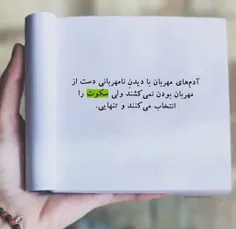 آدم‌های مهربان با دیدنِ نامهربانی دست از
مهربان بودن نمی‌کشند ولی سکوت را
انتخاب می‌کنند و تنهایی.